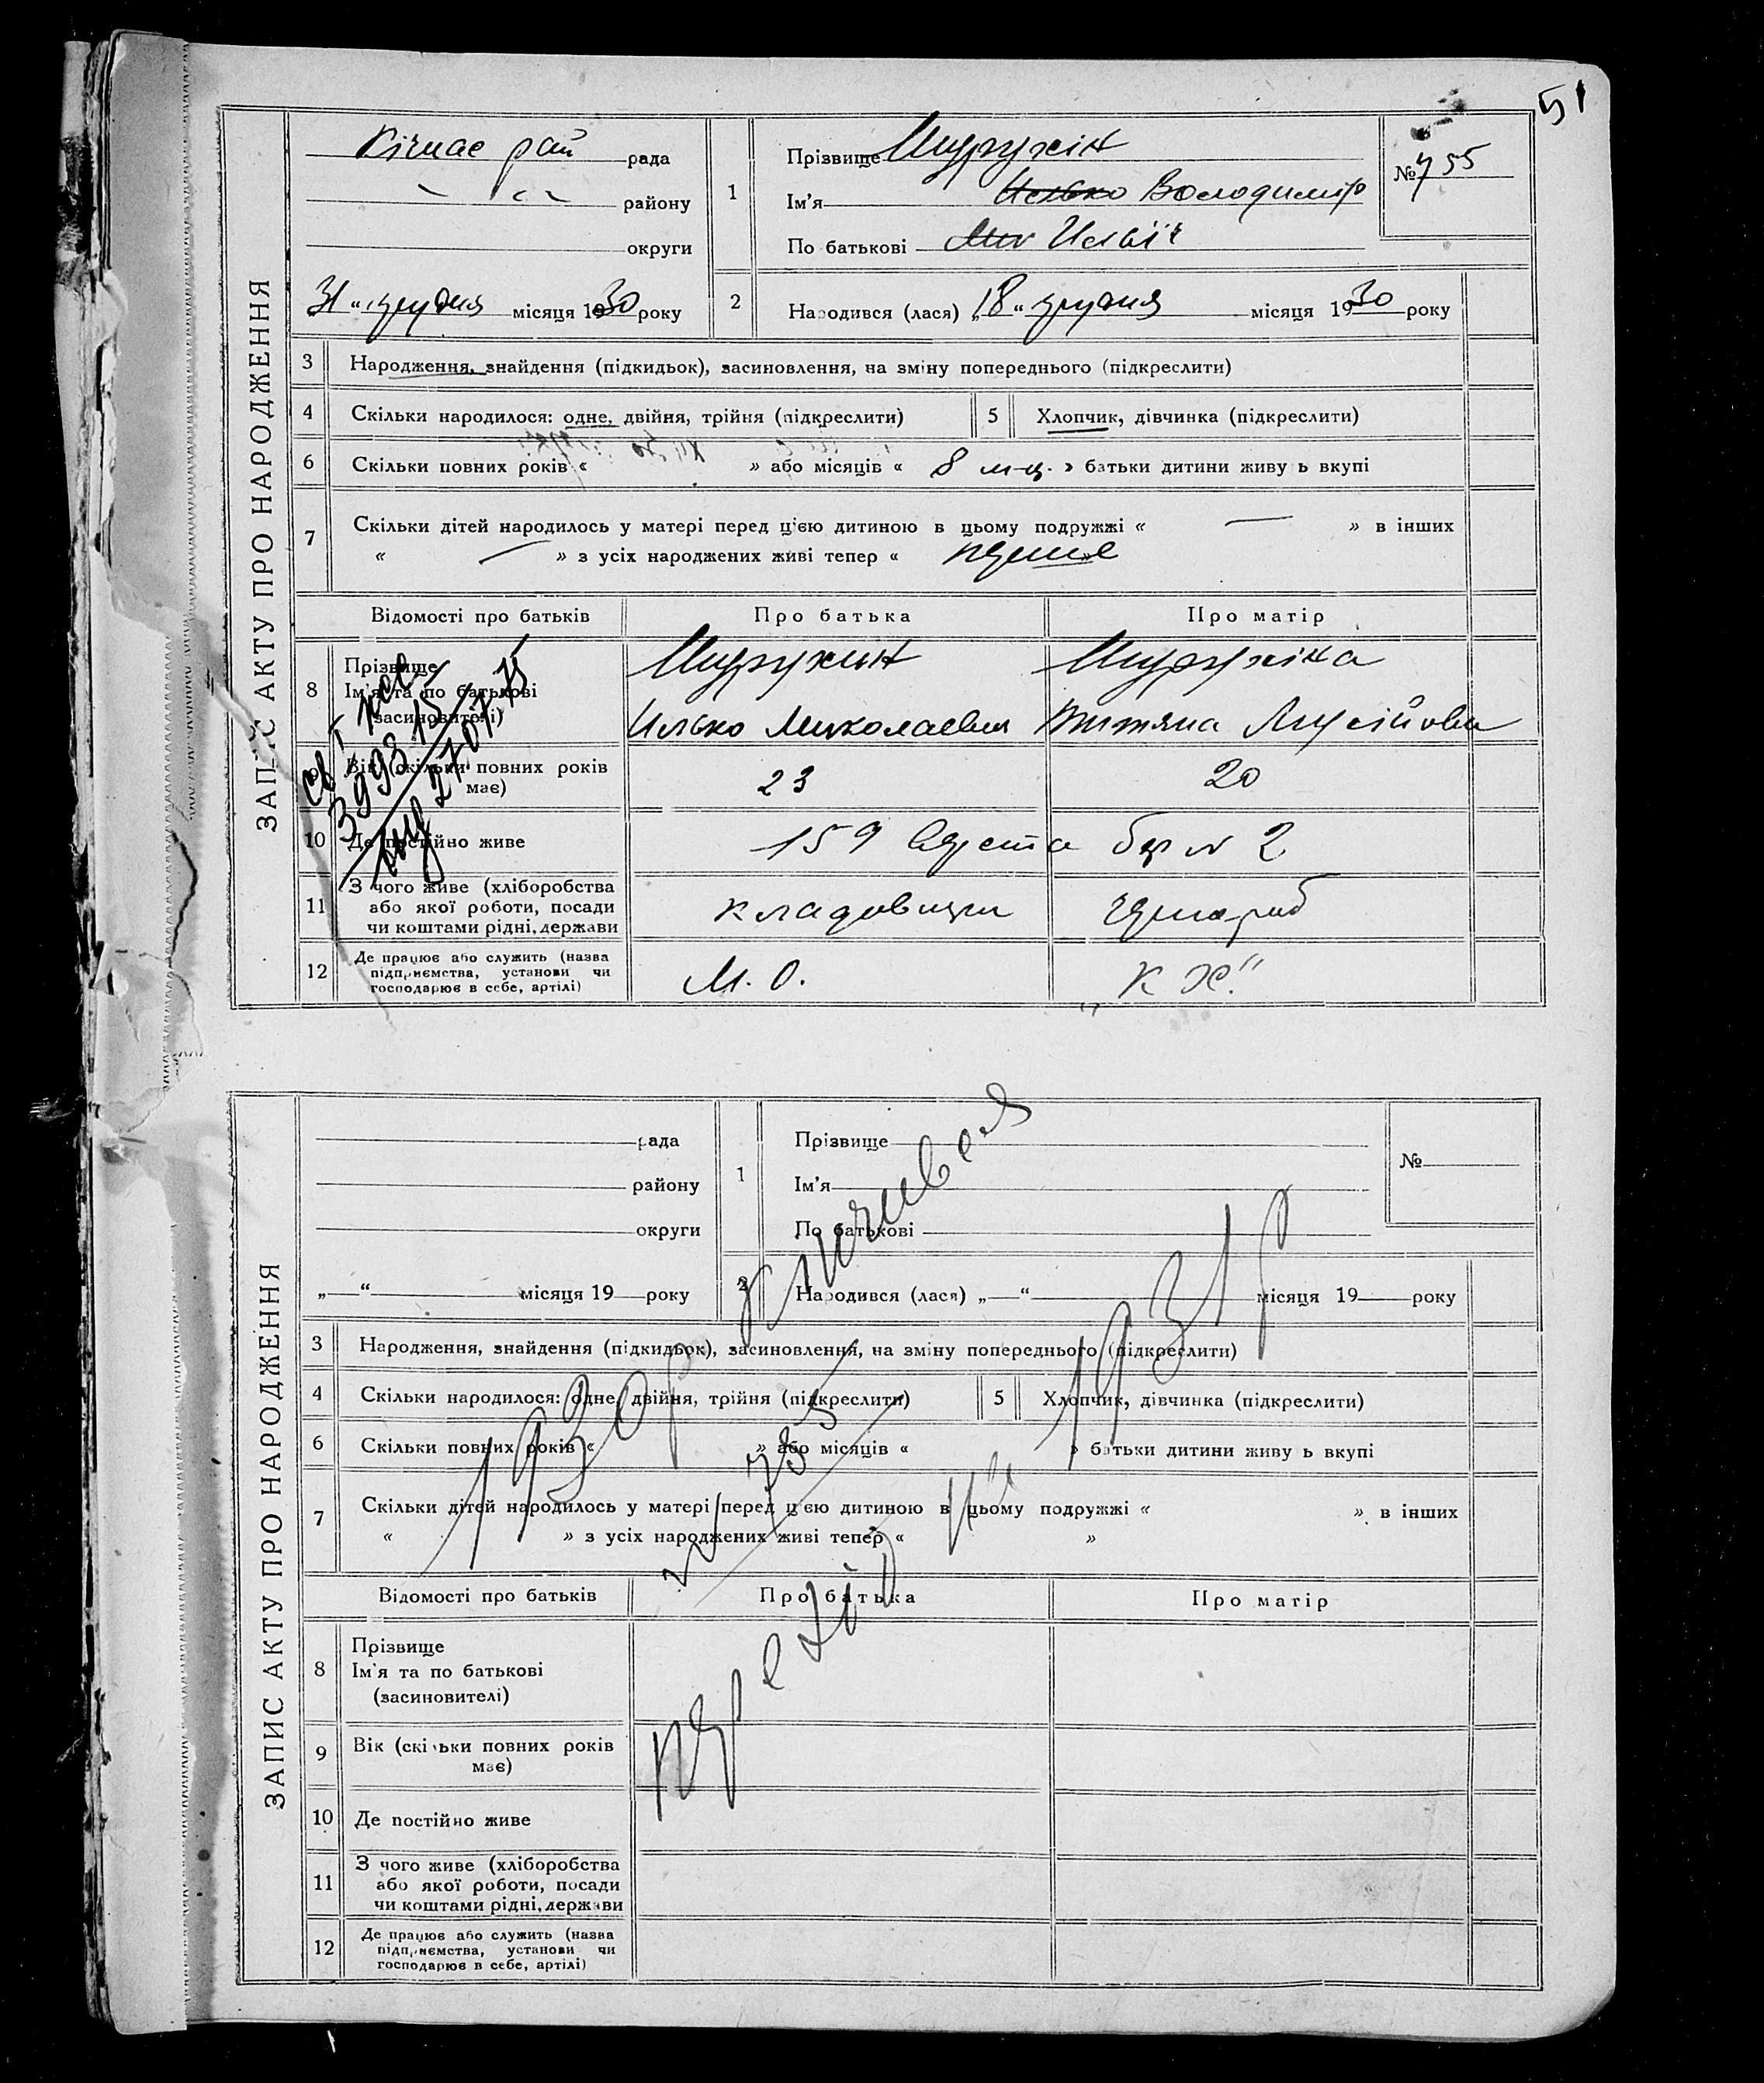 51
ЗАПИС АКТУ ПРО НАРОДЖЕННЯ
рай рада
району
округи
1
Прізвище
Ім'я Илько Володимир
По батькові Ми Ильїч
№ 755
31 “ грудня місяця 1930 року
2
Народився (лася) „18“ грудня місяця 1930 року
3 Народження, знайдення (підкидьок), засиновлення, на зміну попереднього (підкреслити)
4 Скільки народилося: одне, двійня, трійня (підкреслити) 5 Хлопчик, дівчинка (підкреслити)
6 Скільки повних років « » або місяців « 8 м-ц. » батьки дитини живу ь вкупі
7 Скільки дітей народилось у матері перед ц'єю дитиною в цьому подружжі « — » в інших
« — » з усіх народжених живі тепер «
Відомості про батьків Про батька Про матір
8 Прізвище
Ім'я та по батькові
(засиновителі)
Илько Миколаевич
9 Вік (скільки повних років має) 23 20
10 Де постійно живе 159 № 2
11 З чого живе (хліборобства
або якої роботи, посади
чи коштами рідні, держави
12 Де працює або служить (назва
підприємства, установи чи
господарює в себе, артілі)
М. О. „К Х."
ЗАПИС АКТУ ПРО НАРОДЖЕННЯ
рада
району
округи
1
Прізвище
Ім'я
По батькові
№
„ “ місяця 19 року
2
Народився (лася) „ “ місяця 19 року
3 Народження, знайдення (підкидьок), засиновлення, на зміну попереднього (підкреслити)
4 Скільки народилося: одне, двійня, трійня (підкреслити) 5 Хлопчик, дівчинка (підкреслити)
6 Скільки повних років « » або місяців « » батьки дитини живу ь вкупі
7 Скільки дітей народилось у матері перед ц'єю дитиною в цьому подружжі « » в інших
« » з усіх народжених живі тепер « »
Відомості про батьків Про батька Про матір
8 Прізвище
Ім'я та по батькові
(засиновителі)
9 Вік (скільки повних років має)
10 Де постійно живе
11 З чого живе (хліборобства
або якої роботи, посади
чи коштами рідні, держави
12 Де працює або служить (назва
підприємства, установи чи
господарює в себе, артілі)
1930 р
1931 р